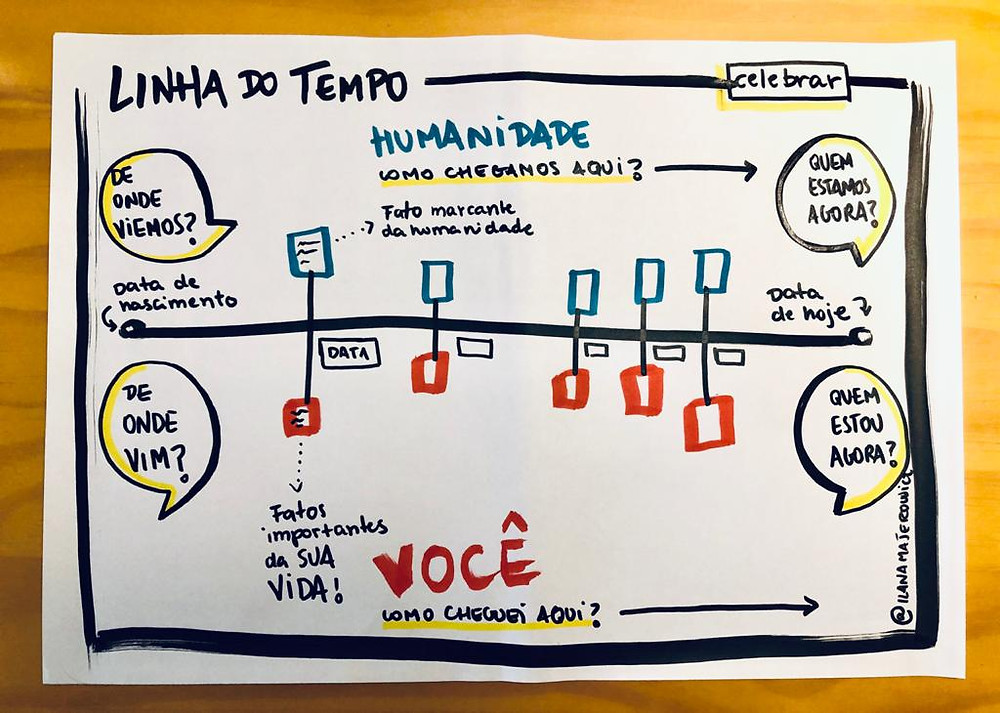 LINHA DO TEMPO
celebrar
HUMANIDADE
COMO CHEGAMOS AQUI?
DE
ONDE
VIEMOS?
QUEM
ESTAMOS
AGORA?
Fato marcante
da humanidade
Data de
nascimento
Data
de hoje
DATA
DE
ONDE
VIM?
QUEM
ESTOU
AGORA?
Fatos
importantes
da SUA
VIDA!
VOCÊ
COMO CHEGUEI AQUI?
@ILANAMAJEROWICZ